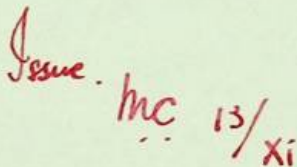 Issue.
MC 13/xi